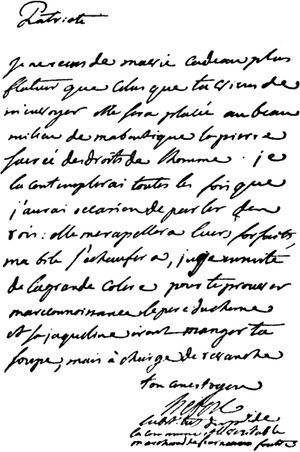 Patriote
je ne recus de ma vie cadeau plus
flateur que celui que tu viens de
m'envoyer elle sera placée au beau
milieu de ma boutique la pierre
sacrée des droits de l'homme. je
la contemplerai toutes les fois que
j'aurai occasion de parler des
rois: elle me rapellera leurs forfaits
ma bile s'echaufera,
de la grande colere pour te prouver
ma reconnoissance le pere duchesne
et sa jaqueline iront manger ta
soupe, mais à charge de revanche
ton concitoyen
hebert
substitut du
la commune et véritable
marchand de fourneaux